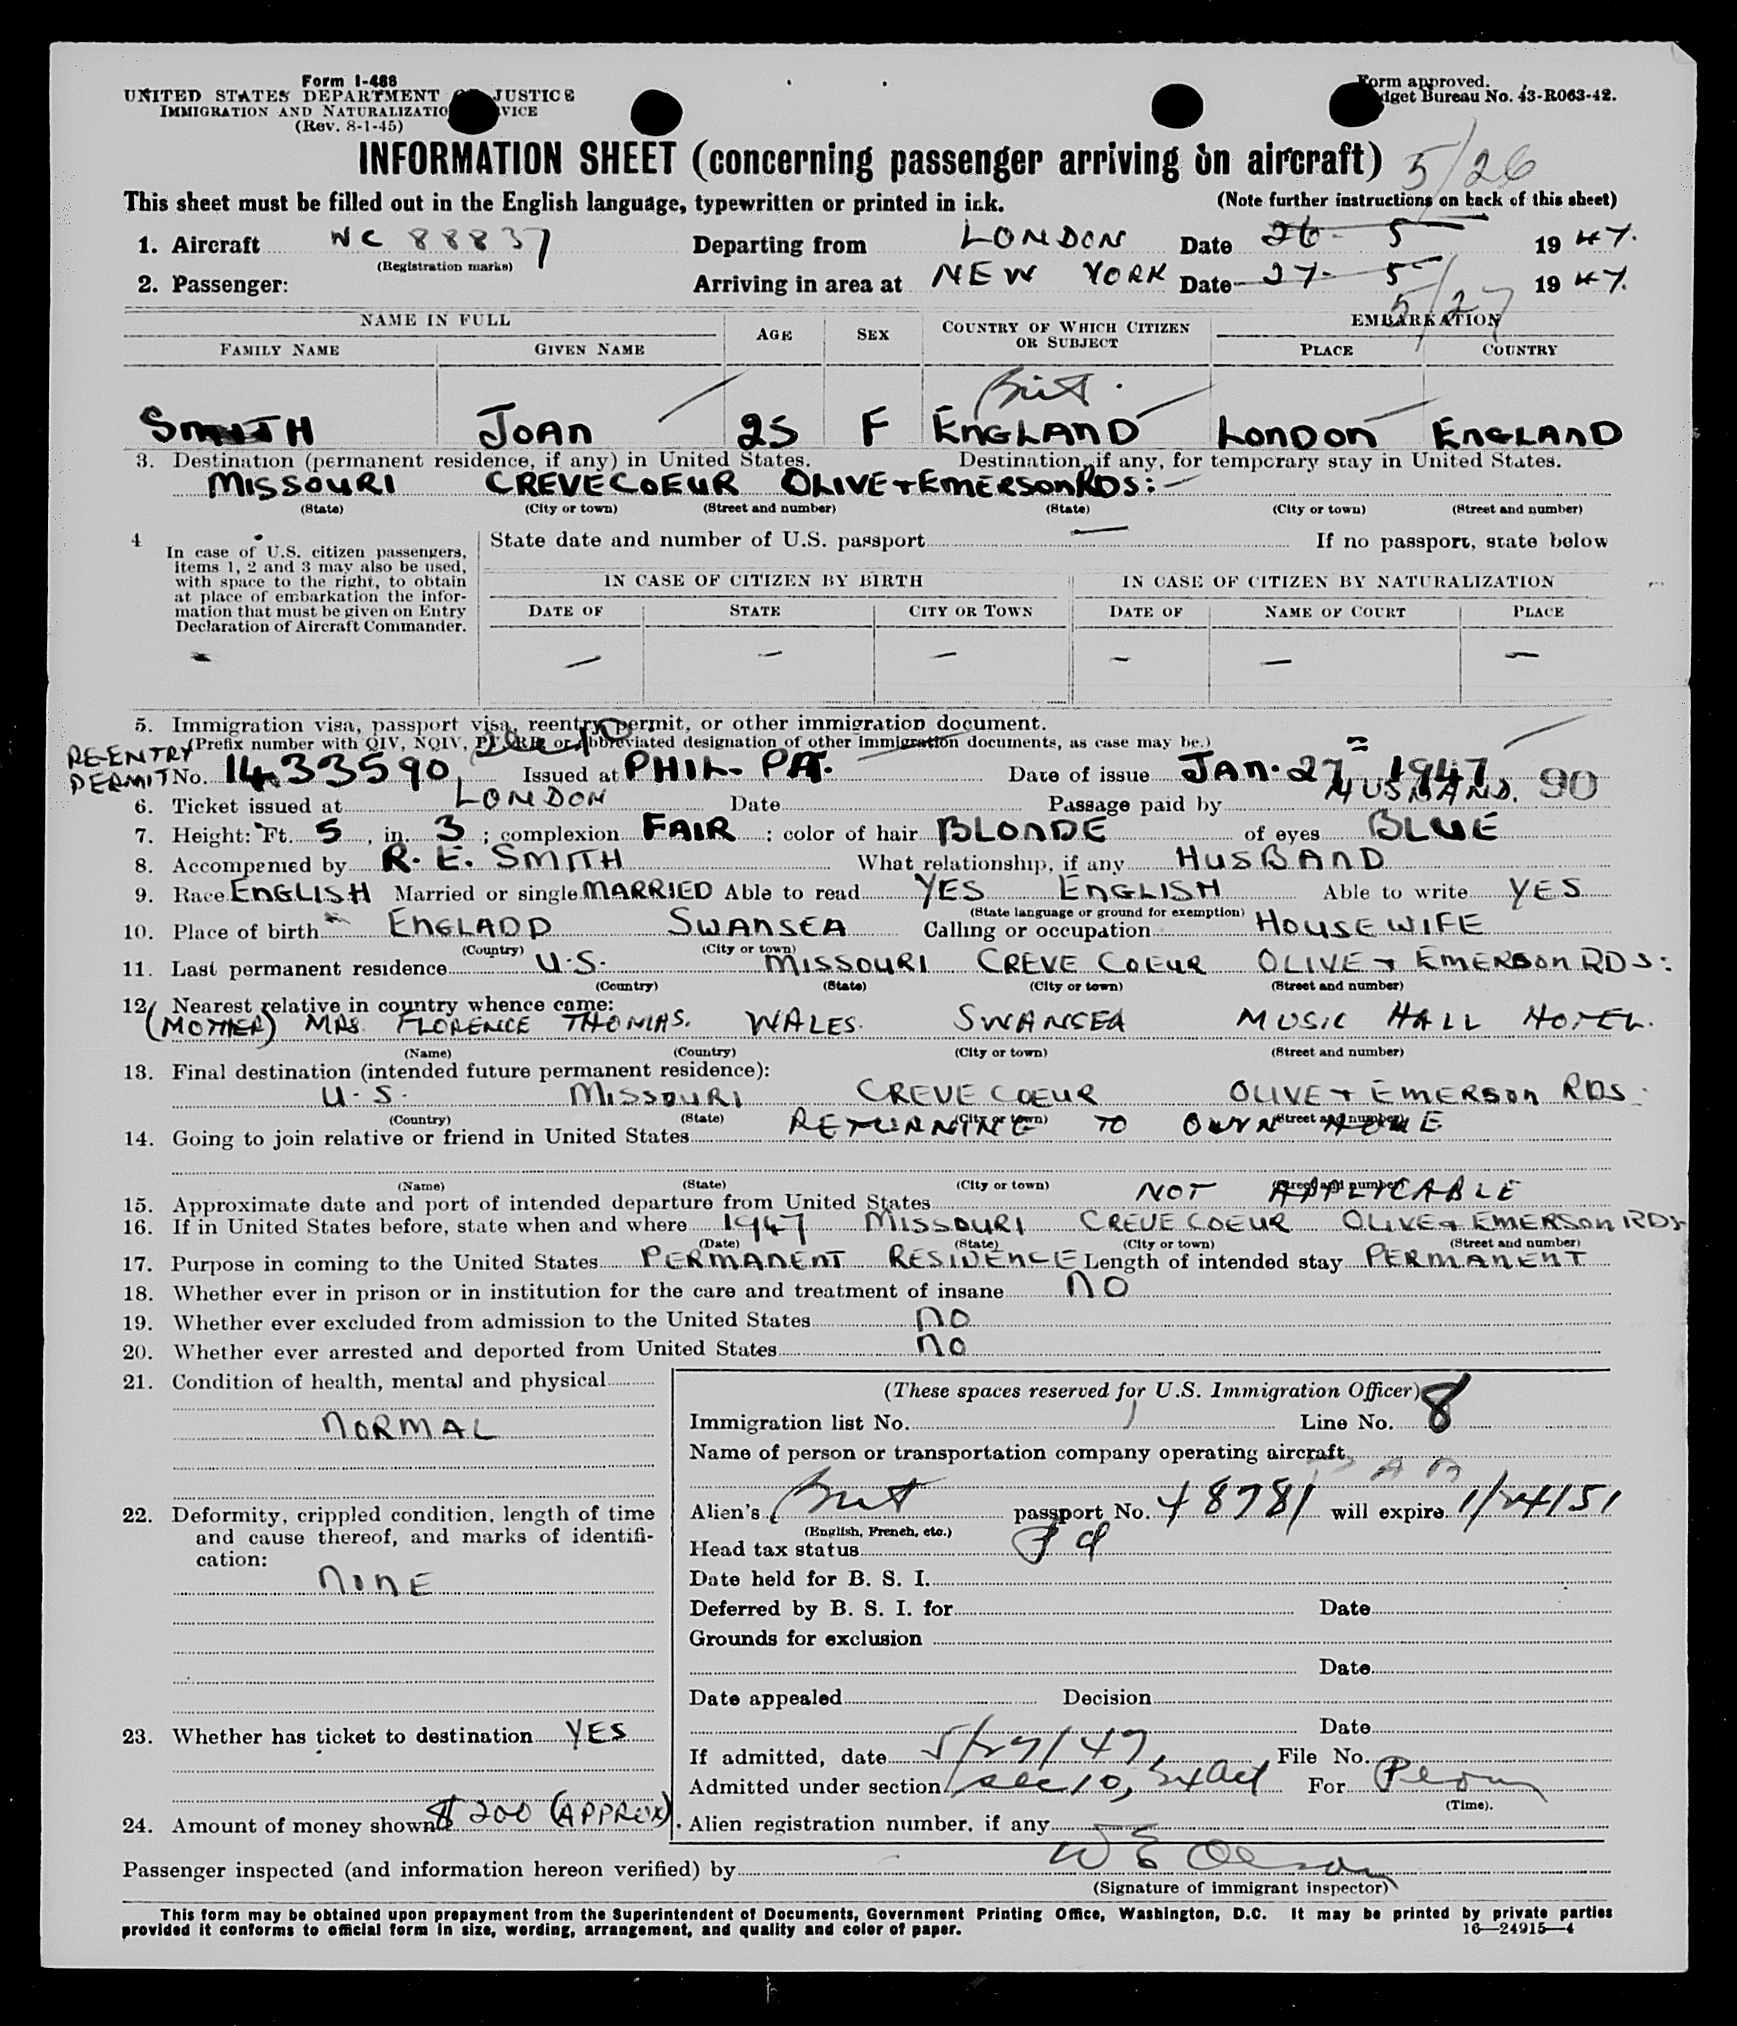 Form I-466
UNITED STATES DEPARTMENT OF JUSTICE
IMMIGRATION AND NATURALIZATION SERVICE
(Rev. 8-1-45)
Form approved.
Budget Bureau No. 43-R063-42.
INFORMATION SHEET (concerning passenger arriving on aircraft) 5/26
This sheet must be filled out in the English language, typewritten or printed in ink. (Note further instructions on back of this sheet)
1. Aircraft NC 88837 Departing from LONDON Date 26- 5 1947.
(Registration marks)
2. Passenger: Arriving in area at NEW YORK Date 27- 5 1947.
5/27
NAME IN FULL AGE SEX COUNTRY OF WHICH CITIZEN OR SUBJECT EMBARKATION
FAMILY NAME GIVEN NAME PLACE COUNTRY
Brit.
SMITH JOAN 25 F ENGLAND LONDON ENGLAND
3. Destination (permanent residence, if any) in United States. Destination, if any, for temporary stay in United States.
MISSOURI CREVECOEUR OLIVE + EMERSON RDS: —
(State) (City or town) (Street and number) (State) (City or town) (Street and number)
4 In case of U.S. citizen passengers, items 1, 2 and 3 may also be used, with space to the right, to obtain at place of embarkation the information that must be given on Entry Declaration of Aircraft Commander.
State date and number of U.S. passport — If no passport, state below
IN CASE OF CITIZEN BY BIRTH IN CASE OF CITIZEN BY NATURALIZATION
DATE OF STATE CITY OR TOWN DATE OF NAME OF COURT PLACE
— — — — — —
5. Immigration visa, passport visa, reentry permit, or other immigration document.
(Prefix number with QIV, NQIV, PV, RP, or abbreviated designation of other immigration documents, as case may be.)
RE-ENTRY PERMIT No. 1433590, Issued at PHIL. PA. Date of issue JAN. 27 1947
6. Ticket issued at LONDON Date Passage paid by HUSBAND. 90
7. Height: Ft. 5, in. 3; complexion FAIR; color of hair BLONDE of eyes BLUE
8. Accompanied by R. E. SMITH What relationship, if any HUSBAND
9. Race ENGLISH Married or single MARRIED Able to read YES ENGLISH Able to write YES
(State language or ground for exemption)
10. Place of birth ENGLADD SWANSEA Calling or occupation HOUSEWIFE
(Country) (City or town)
11. Last permanent residence U.S. MISSOURI CREVE COEUR OLIVE + EMERSON RDS:
(Country) (State) (City or town) (Street and number)
12. Nearest relative in country whence came:
(MOTHER) MRS. FLORENCE THOMAS. WALES. SWANSEA MUSIC HALL HOTEL.
(Name) (Country) (City or town) (Street and number)
13. Final destination (intended future permanent residence):
U.S. MISSOURI CREVE COEUR OLIVE + EMERSON RDS.
(Country) (State) (City or town) (Street and number)
14. Going to join relative or friend in United States RETURNING TO OWN HOME
(Name) (State) (City or town) (Street and number)
15. Approximate date and port of intended departure from United States NOT APPLICABLE
16. If in United States before, state when and where 1947 MISSOURI CREVE COEUR OLIVE + EMERSON RDS
(Date) (State) (City or town) (Street and number)
17. Purpose in coming to the United States PERMANENT RESIDENCE Length of intended stay PERMANENT
18. Whether ever in prison or in institution for the care and treatment of insane NO
19. Whether ever excluded from admission to the United States NO
20. Whether ever arrested and deported from United States NO
21. Condition of health, mental and physical
NORMAL
22. Deformity, crippled condition, length of time
and cause thereof, and marks of identification:
NONE
23. Whether has ticket to destination YES
24. Amount of money shown $ 200 (APPROX)
(These spaces reserved for U.S. Immigration Officer)
Immigration list No. 1 Line No. 8
Name of person or transportation company operating aircraft
P A A
Alien's Brit passport No. 48781 will expire 1/24/51
(English, French, etc.)
Head tax status
Date held for B. S. I.
Deferred by B. S. I. for Date
Grounds for exclusion
Date
Date appealed Decision
Date
If admitted, date 5/27/47, File No.
Admitted under section sec 10, 24 Act For Perm
(Time).
Alien registration number, if any
Passenger inspected (and information hereon verified) by W E Olson
(Signature of immigrant inspector)
This form may be obtained upon prepayment from the Superintendent of Documents, Government Printing Office, Washington, D.C. It may be printed by private parties
provided it conforms to official form in size, wording, arrangement, and quality and color of paper. 16—24915—4